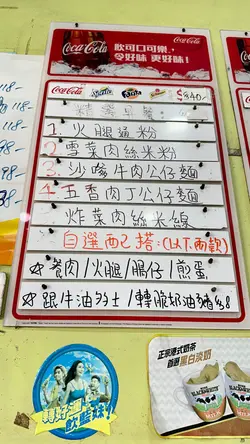 Coca-Cola
欣可口可樂，
令好味 更好味！
Coca-Cola
Sprite
Fanta
$40/-
精選早餐
1. 火腿通粉
2. 雪菜肉絲米粉
3. 沙嗲牛肉公仔麵
4. 五香肉丁公仔麵
炸菜肉絲米線
自選配搭：(以下兩款)
☆餐肉/火腿/腸仔/煎蛋
☆跟牛油多士/轉脆奶油豬
118-
118-
98-
正宗港式奶茶
首選黑白淡奶
BLACK&WHITE